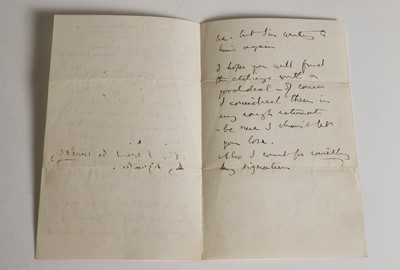 &c. but I'm writing to
him again
I hope you will find
the etchings worth a
good deal – Of course
I considered them in
my rough estimate
– be sure I shan't let
you lose.
Also I count for something
my signature